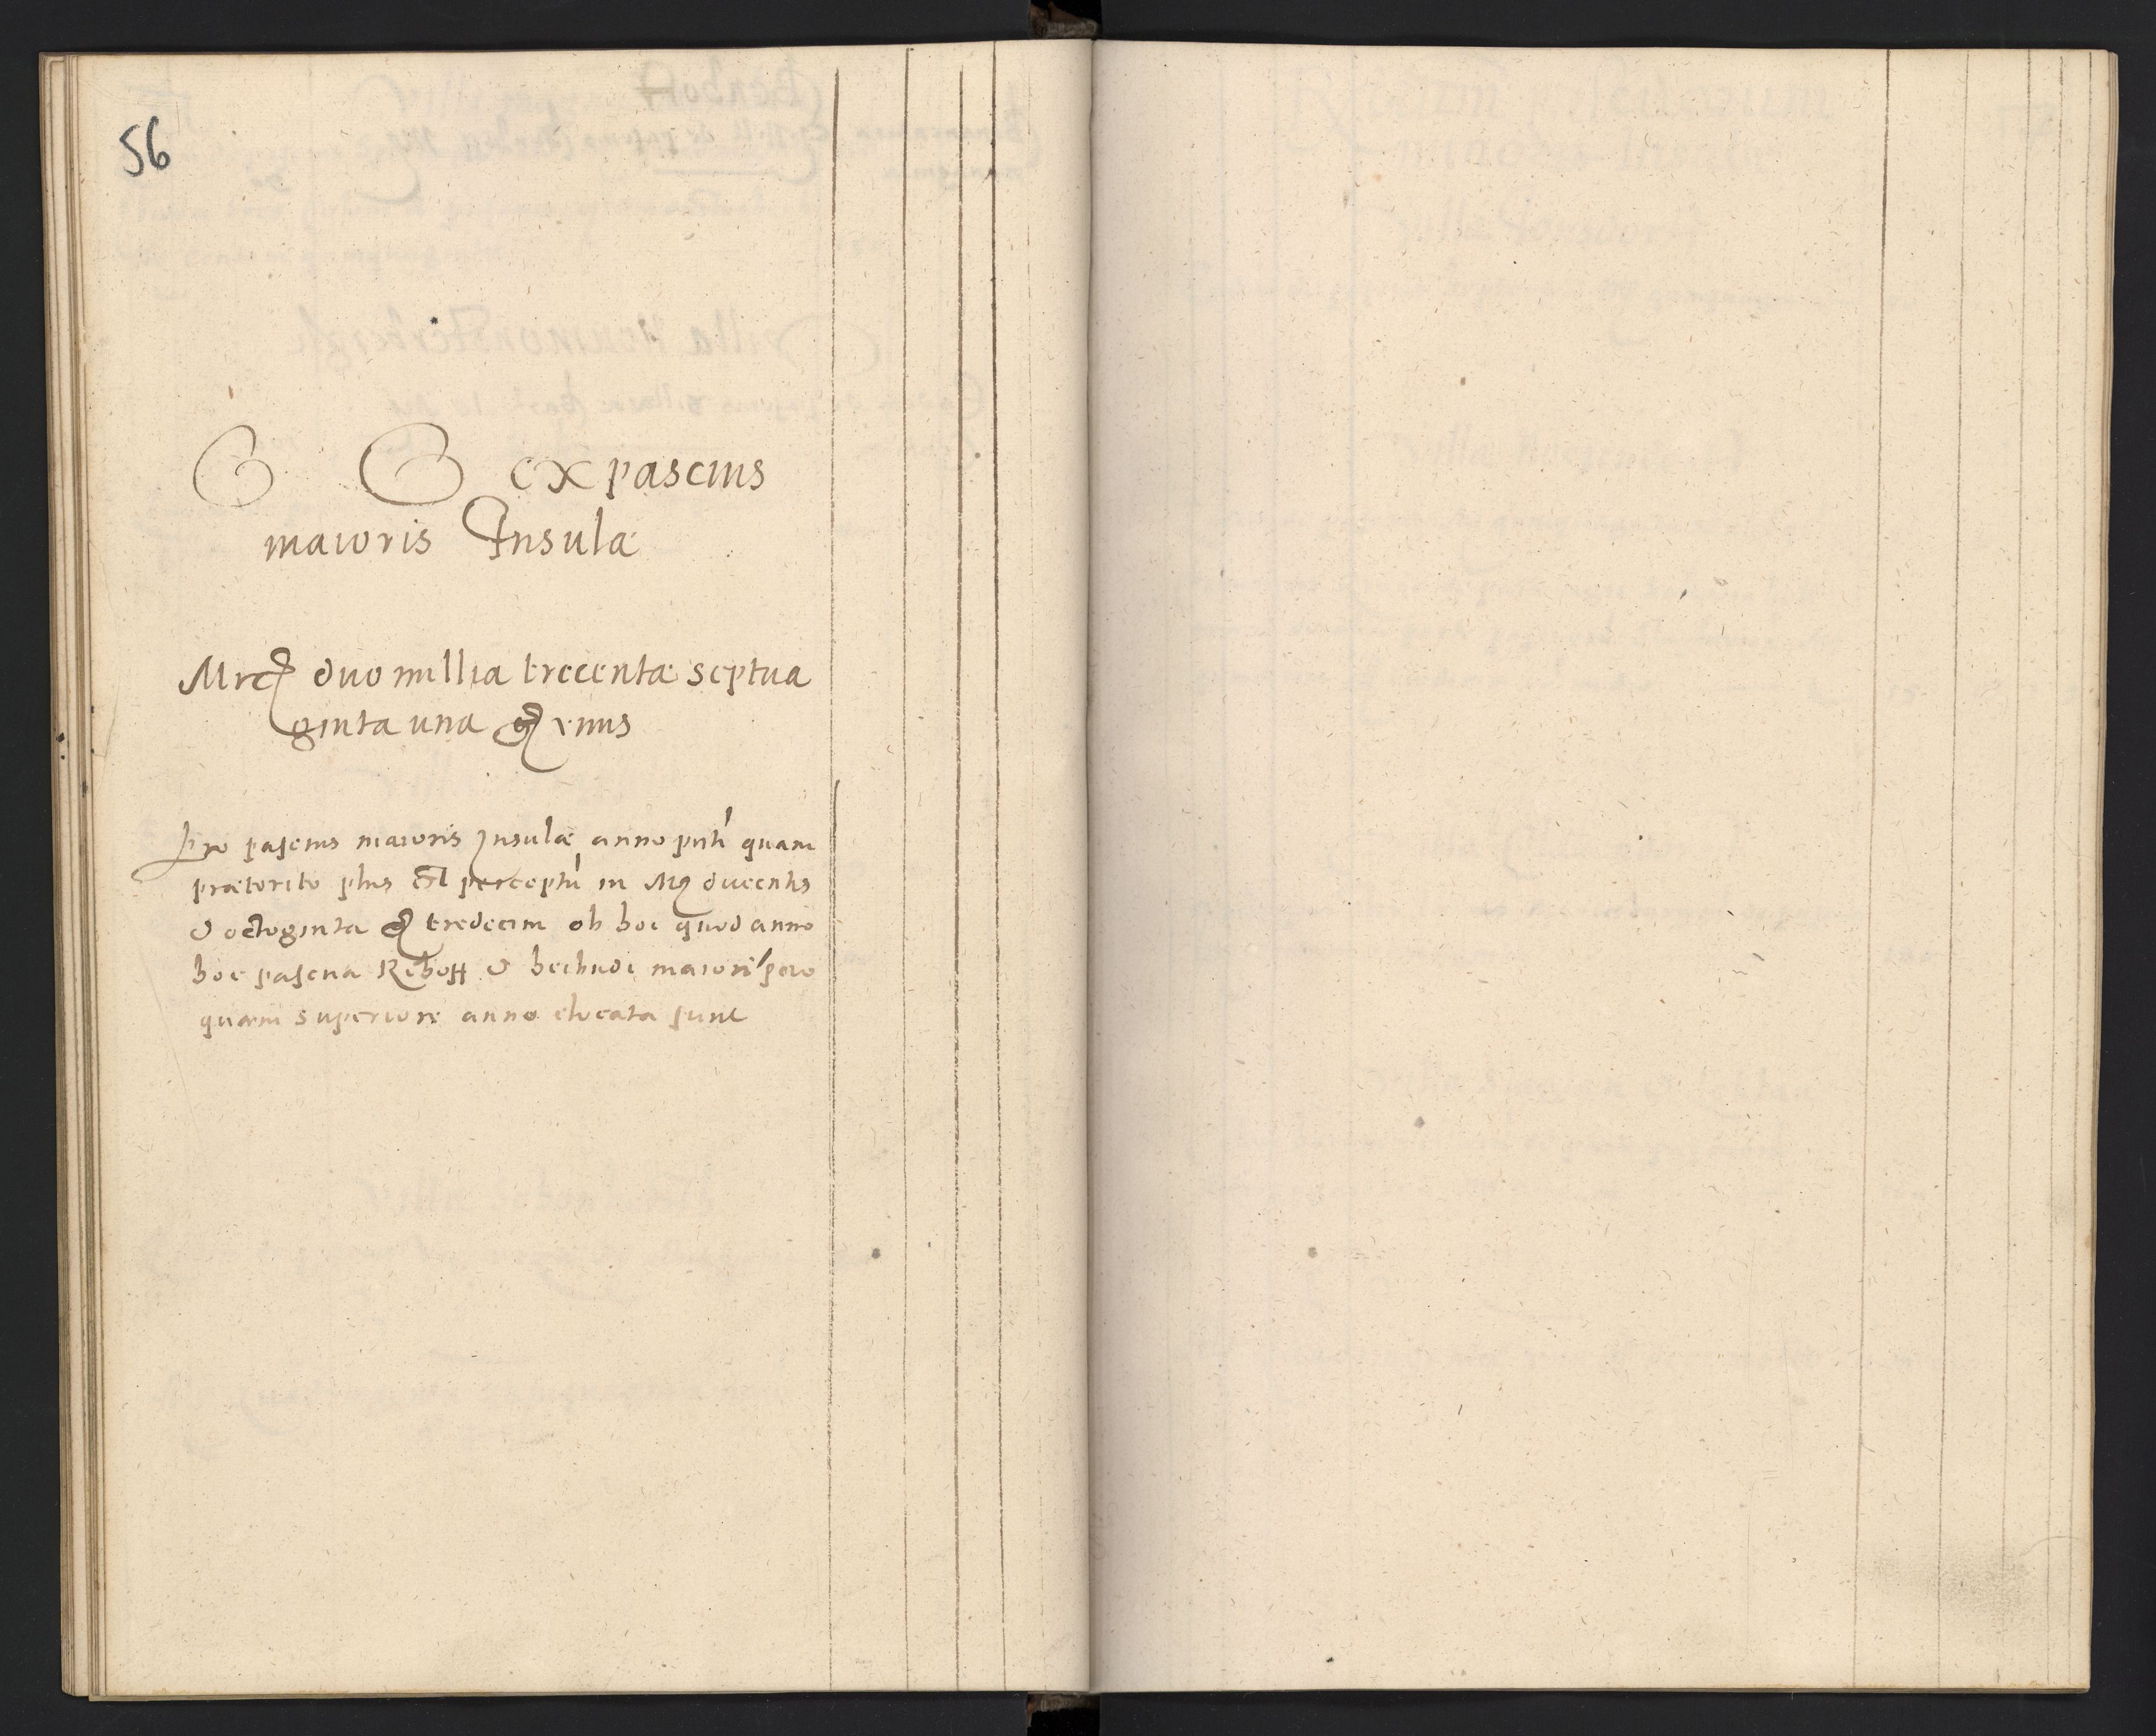 56
ex pascuis
maioris Insulæ
Mrc duo millia trecentæ septua
ginta una gr unus
Pro pascuis maioris Insulæ anno pnti quam
præterito plus est perceptū in Mr ducentis
& octoginta gr tredecim ob hoc quod anno
hoc pascua & maiori
quam superiore anno elocata sunt